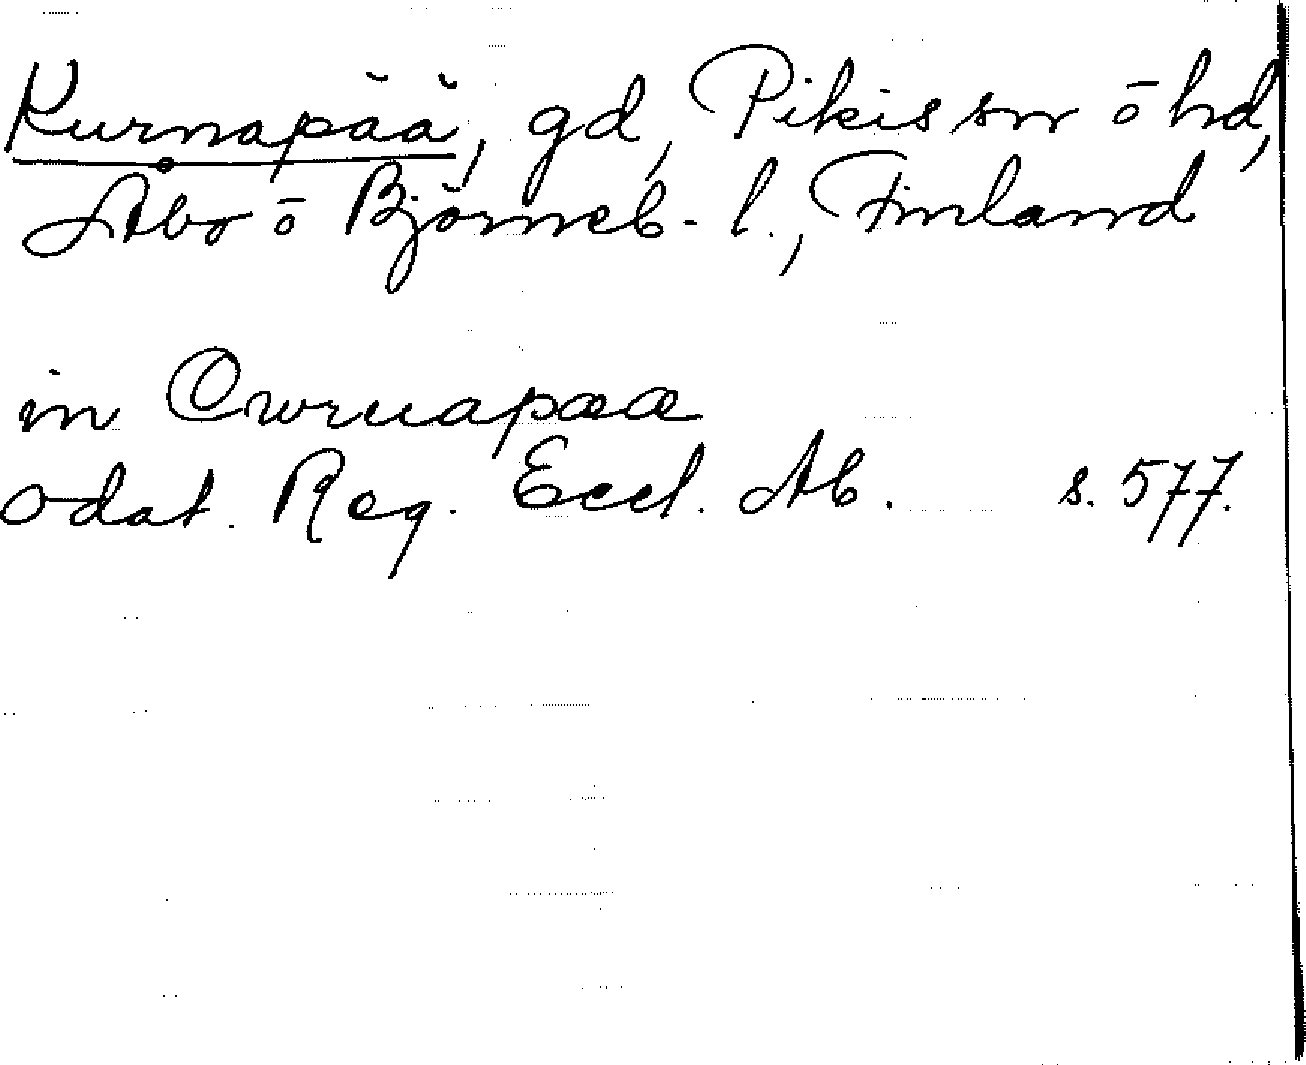 Kurnapää, gd, Pikis sn ō hd,
Åbo ō Björneb-l., Finland
in Cwruapææ
odat. Reg. Eccl. Ab. s. 577.